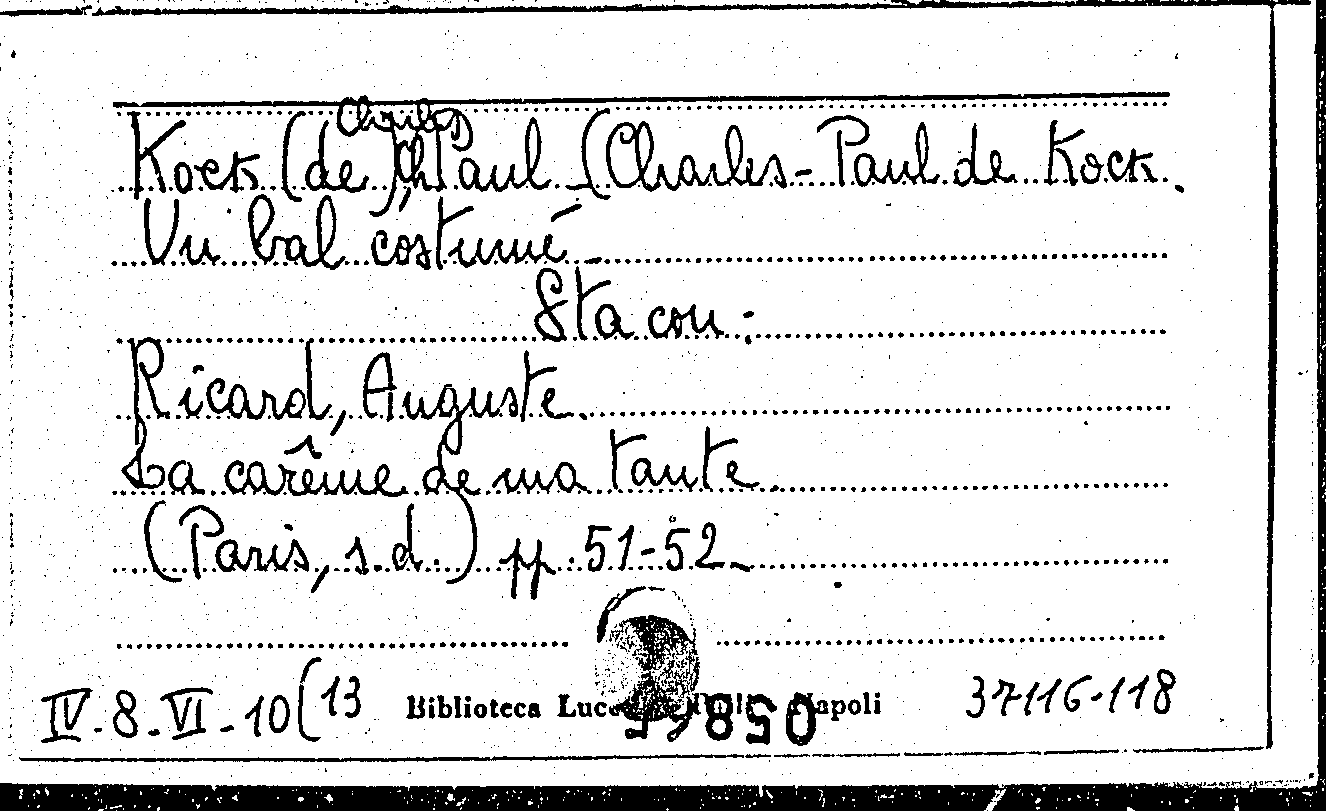 Charles
Kock (de), Ch. Paul - (Charles-Paul de Kock.
Un bal costumé -
Sta con:
Ricard, Auguste.
La carême de ma tante.
(Paris, s.d.) pp. 51-52 -
IV-8-VI-10(13 Biblioteca Napoli 37116-118